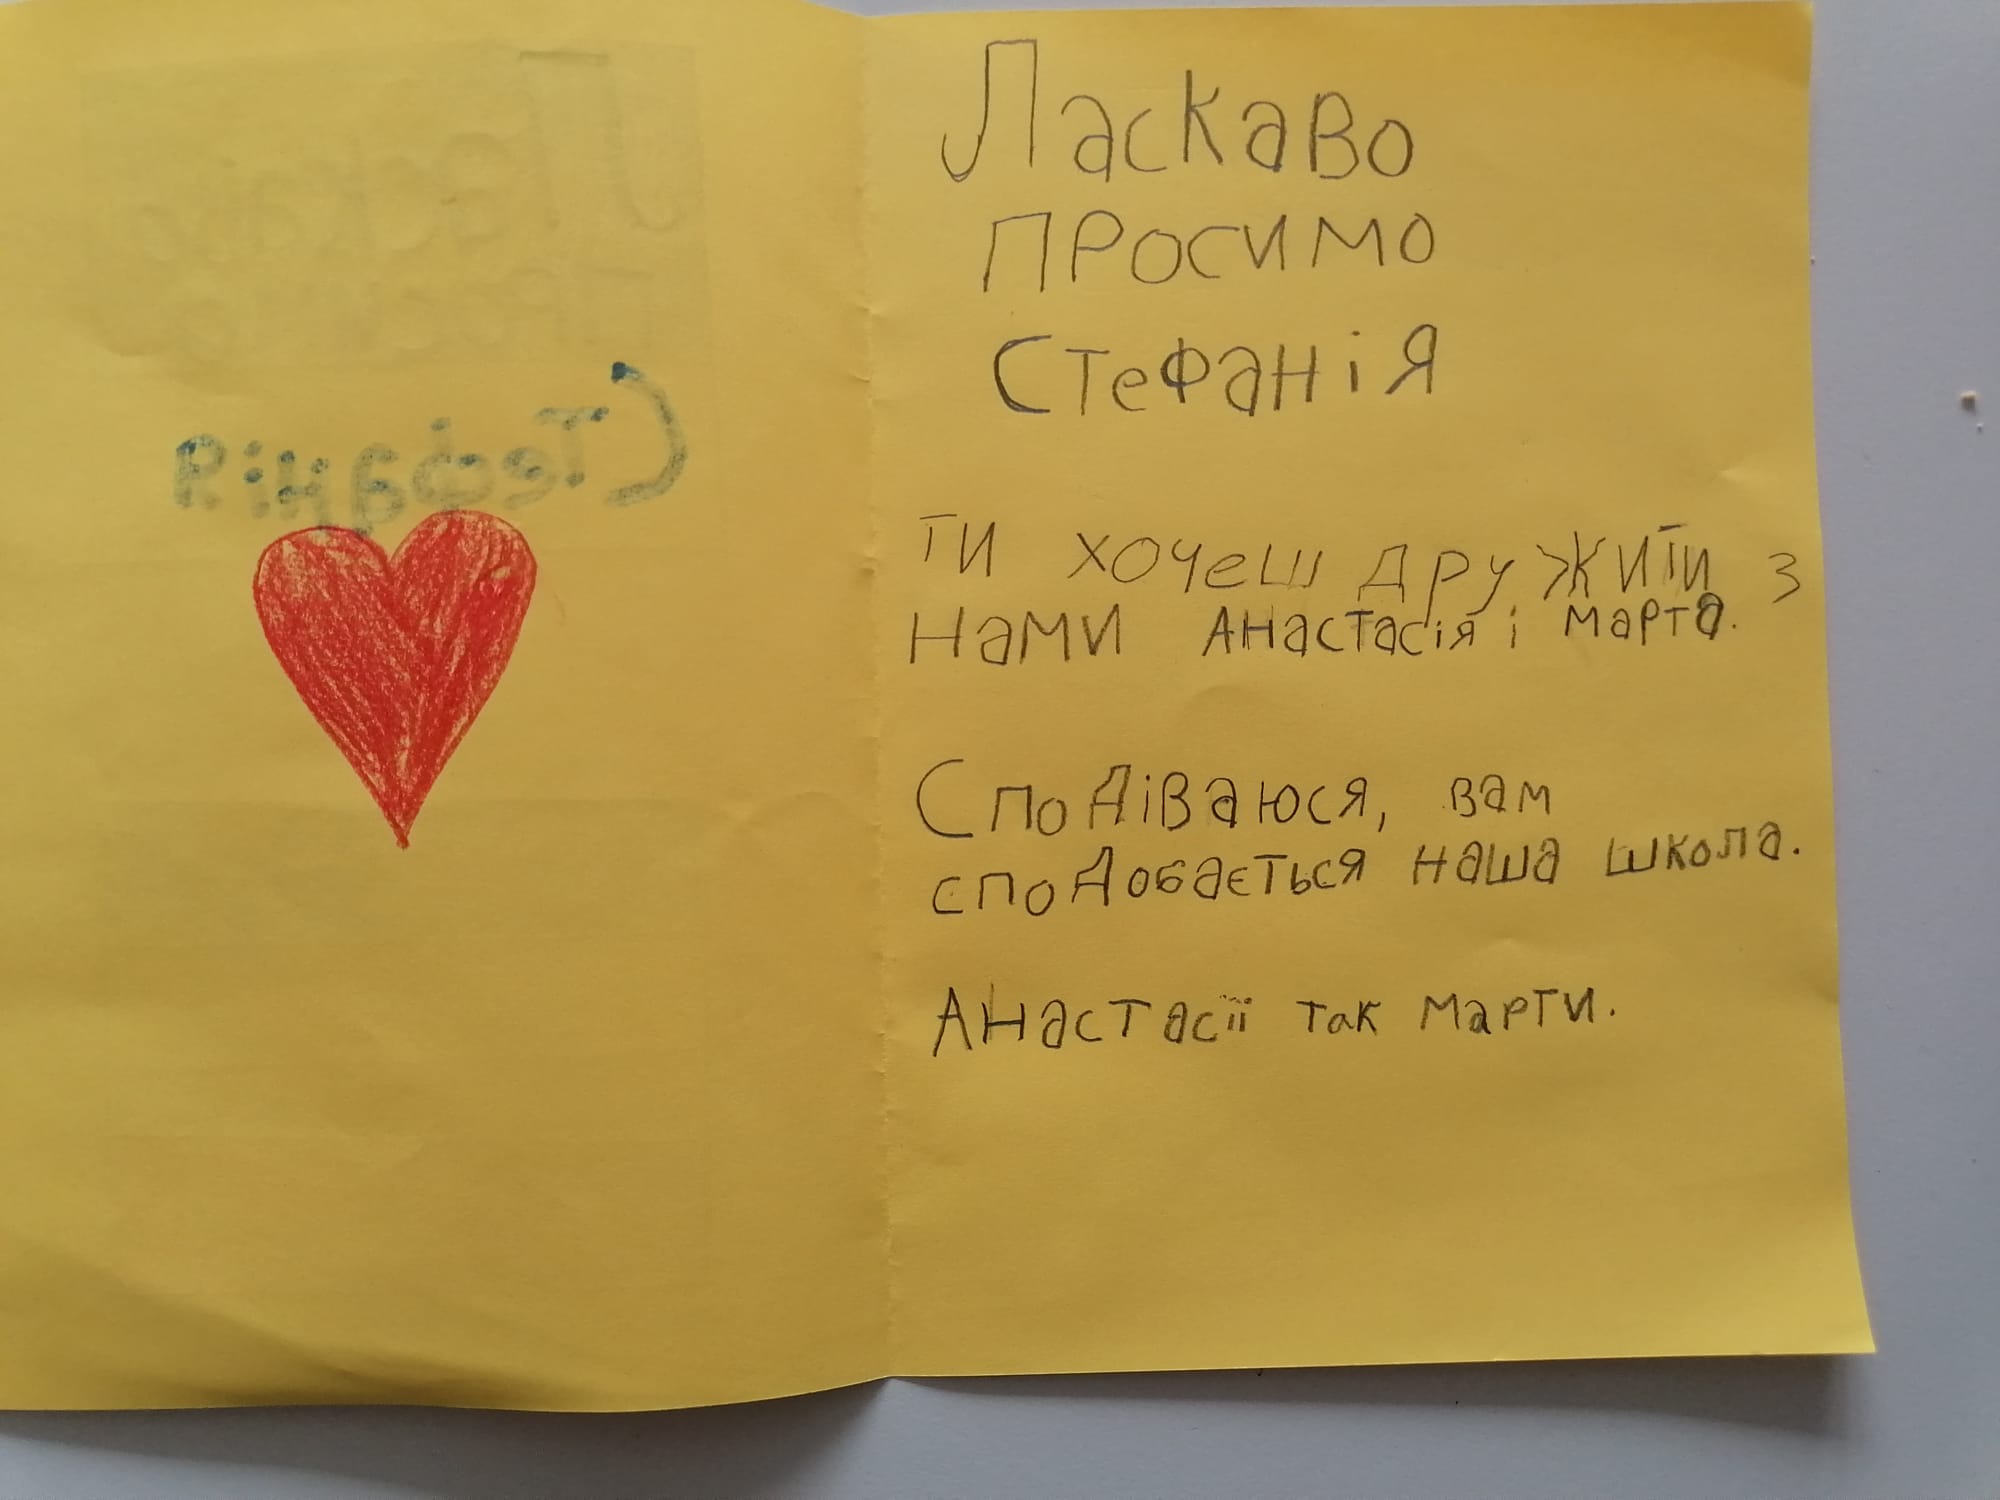 Ласкаво
просимо
Стефанія
Стефанія
ти хочеш дружити з
нами Анастасія і марта.
Сподіваюся, вам
сподобається наша школа.
Анастасії так марти.